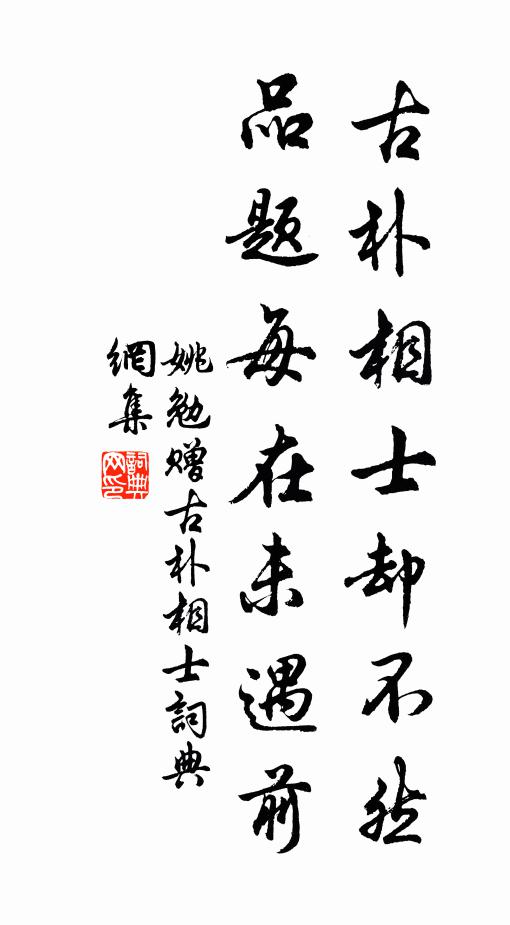 古朴相士却不然
品题每在未遇前
姚勉赠古朴相士詞典
網集
詞典网印